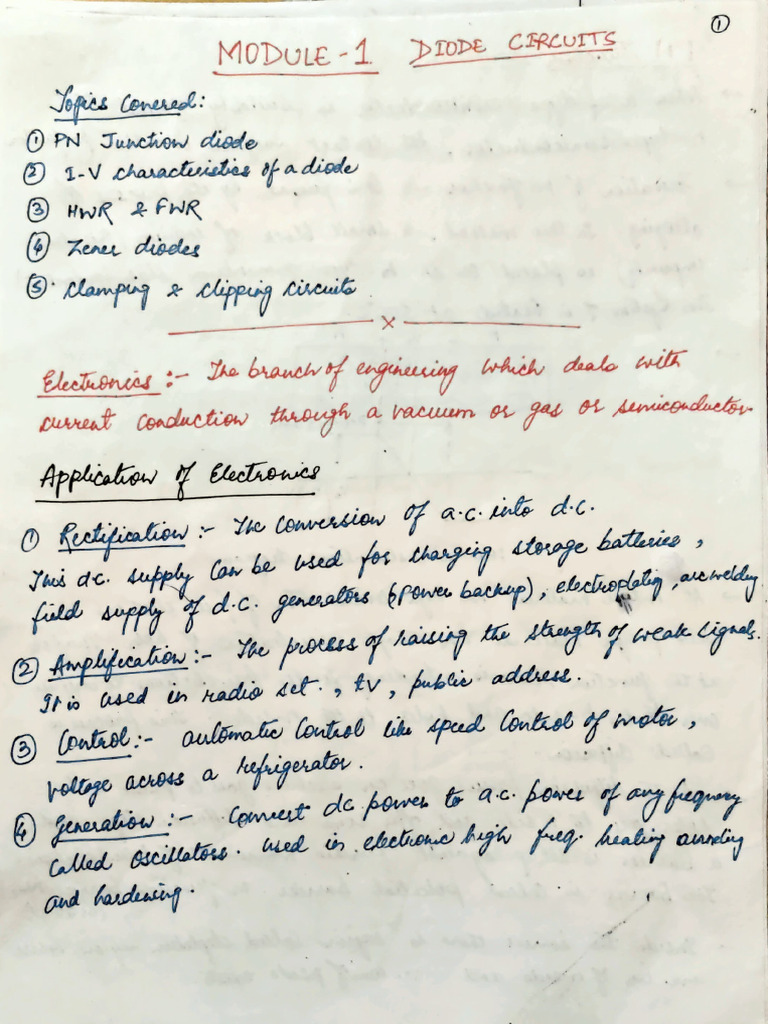 ①
MODULE-1 DIODE CIRCUITS
Topics Covered:
① PN Junction diode
② I-V characteristics of a diode
③ HWR & FWR
④ Zener diodes
⑤. Clamping & Clipping Circuits
x
Electronics :- The branch of engineering which deals with
current conduction through a vacuum or gas or semiconductor.
Application of Electronics
① Rectification :- The conversion of a.c. into d.c.
This dc. supply can be used for charging storage batteries,
field supply of d.c. generators (power backup), electroplating, arc welding
② Amplification :- The process of raising the strength of weak signals.
It is used in radio set., tv, public address.
③ Control :- automatic control like speed control of motor,
voltage across a refrigerator.
④ Generation :- Convert dc power to a.c. power of any frequency
called oscillators. used in electronic high freq. heating
and hardening.